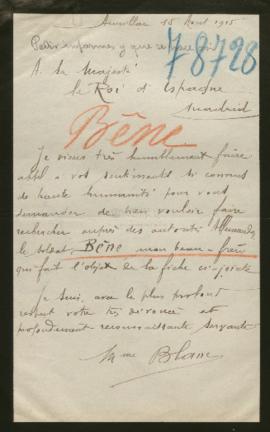 Aurillac 15 Aout 1915
Para informar y que se
78728
A Sa Majesté
le Roi d'Espagne
Madrid
Bêne
Je viens très humblement faire
appel a vos sentiments si connus
de haute humanité pour vous
demander de bien vouloir faire
rechercher auprès des autorités Allemandes
le soldat Bêne mon beau-frère
qui fait l'objet de la fiche ci-jointe
Je suis, avec le plus profond
respect votre très dévouée et
profondément reconnaissante servante
Mme Blanc